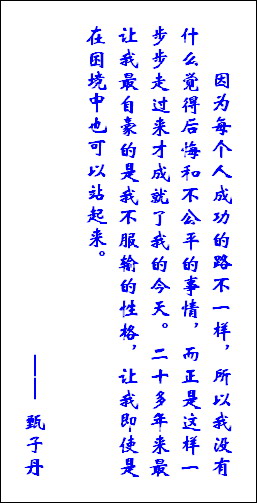 因为每个人成功的路不一样，所以我没有
什么觉得后悔和不公平的事情，而正是这样一
步步走过来才成就了我的今天。二十多年来最
让我最自豪的是我不服输的性格，让我即使是
在困境中也可以站起来。
——甄子丹